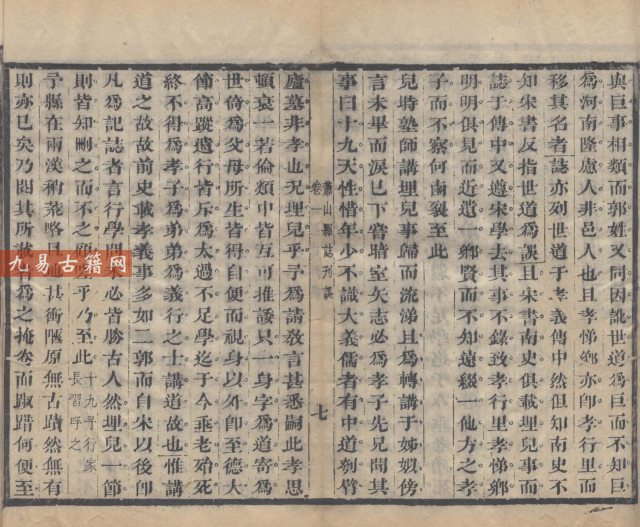 與巨事相類而郭姓又同因訛世道爲巨而不知巨
爲河南隆慮人非邑人也且孝悌鄉亦卽孝行里而
移其名者誌亦列世道于孝義傳中然但知南史不
知宋書反指世道爲誤且宋書南史俱載埋兒事而
誌于傳中又遵宋學去其事不錄致孝行里孝悌鄉
明明俱見而近遺一鄉賢而不知遠綴一他方之孝
子而不察何南裂至此
兒時塾師講埋兒事歸而流涕且爲轉講于姊姒傍
言未畢而淚已下嘗暗室矢志必爲孝子先兄聞其
事曰十九天性惜年少不識大義儒者有中道刲臂
蕭山縣誌刊誤
卷一
七
廬墓非孝也况埋兒乎予爲請敎言甚悉嗣此孝思
頓哀一若倫類中皆互可推諉只一身字爲道寄爲
世倚爲父母所生皆得自便而視身以外卽至德大
節高蹤遺行皆斥爲太過不足學迄于今乖老殆死
終不得爲孝子爲弟弟爲義行之士講道故也惟講
道之故故前史載孝義事多如二郭而自宋以後卽
凡爲記誌者言行學問必皆勝古人然埋兒一節
則皆知刪之而不之顧乎乃至此十九字行家長習呼之
予縣在兩漢稗荒略且甚衝陋原無古蹟然無有
則亦已矣乃閱其所載爲之掩卷而踧踖何便至
九易古籍网